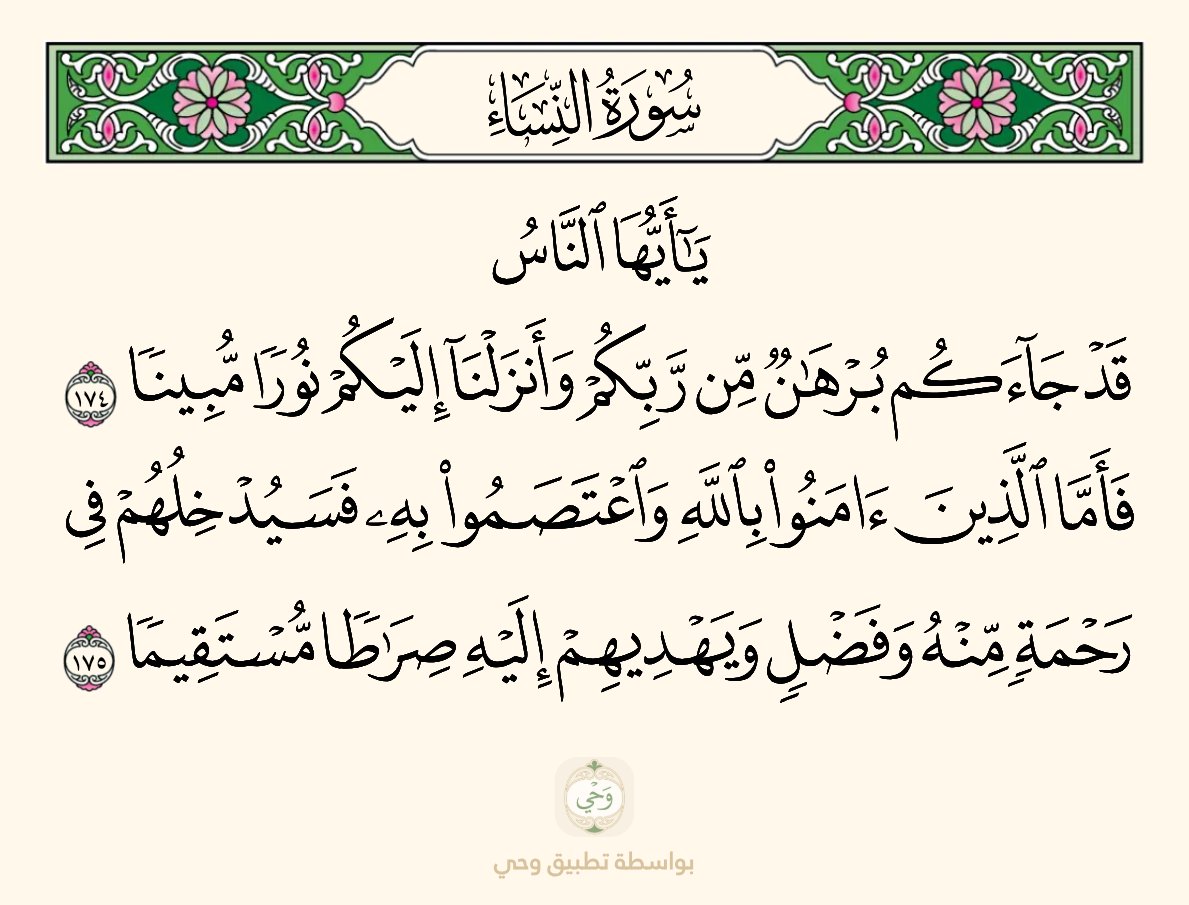 سُورَةُ النِّسَاءِ
يَٰٓأَيُّهَا ٱلنَّاسُ
قَدْ جَآءَكُم بُرْهَٰنٌ مِّن رَّبِّكُمْ وَأَنزَلْنَآ إِلَيْكُمْ نُورًا مُّبِينًا ١٧٤
فَأَمَّا ٱلَّذِينَ ءَامَنُوا۟ بِٱللَّهِ وَٱعْتَصَمُوا۟ بِهِۦ فَسَيُدْخِلُهُمْ فِى
رَحْمَةٍ مِّنْهُ وَفَضْلٍ وَيَهْدِيهِمْ إِلَيْهِ صِرَٰطًا مُّسْتَقِيمًا ١٧٥
وَحْي
بواسطة تطبيق وحي